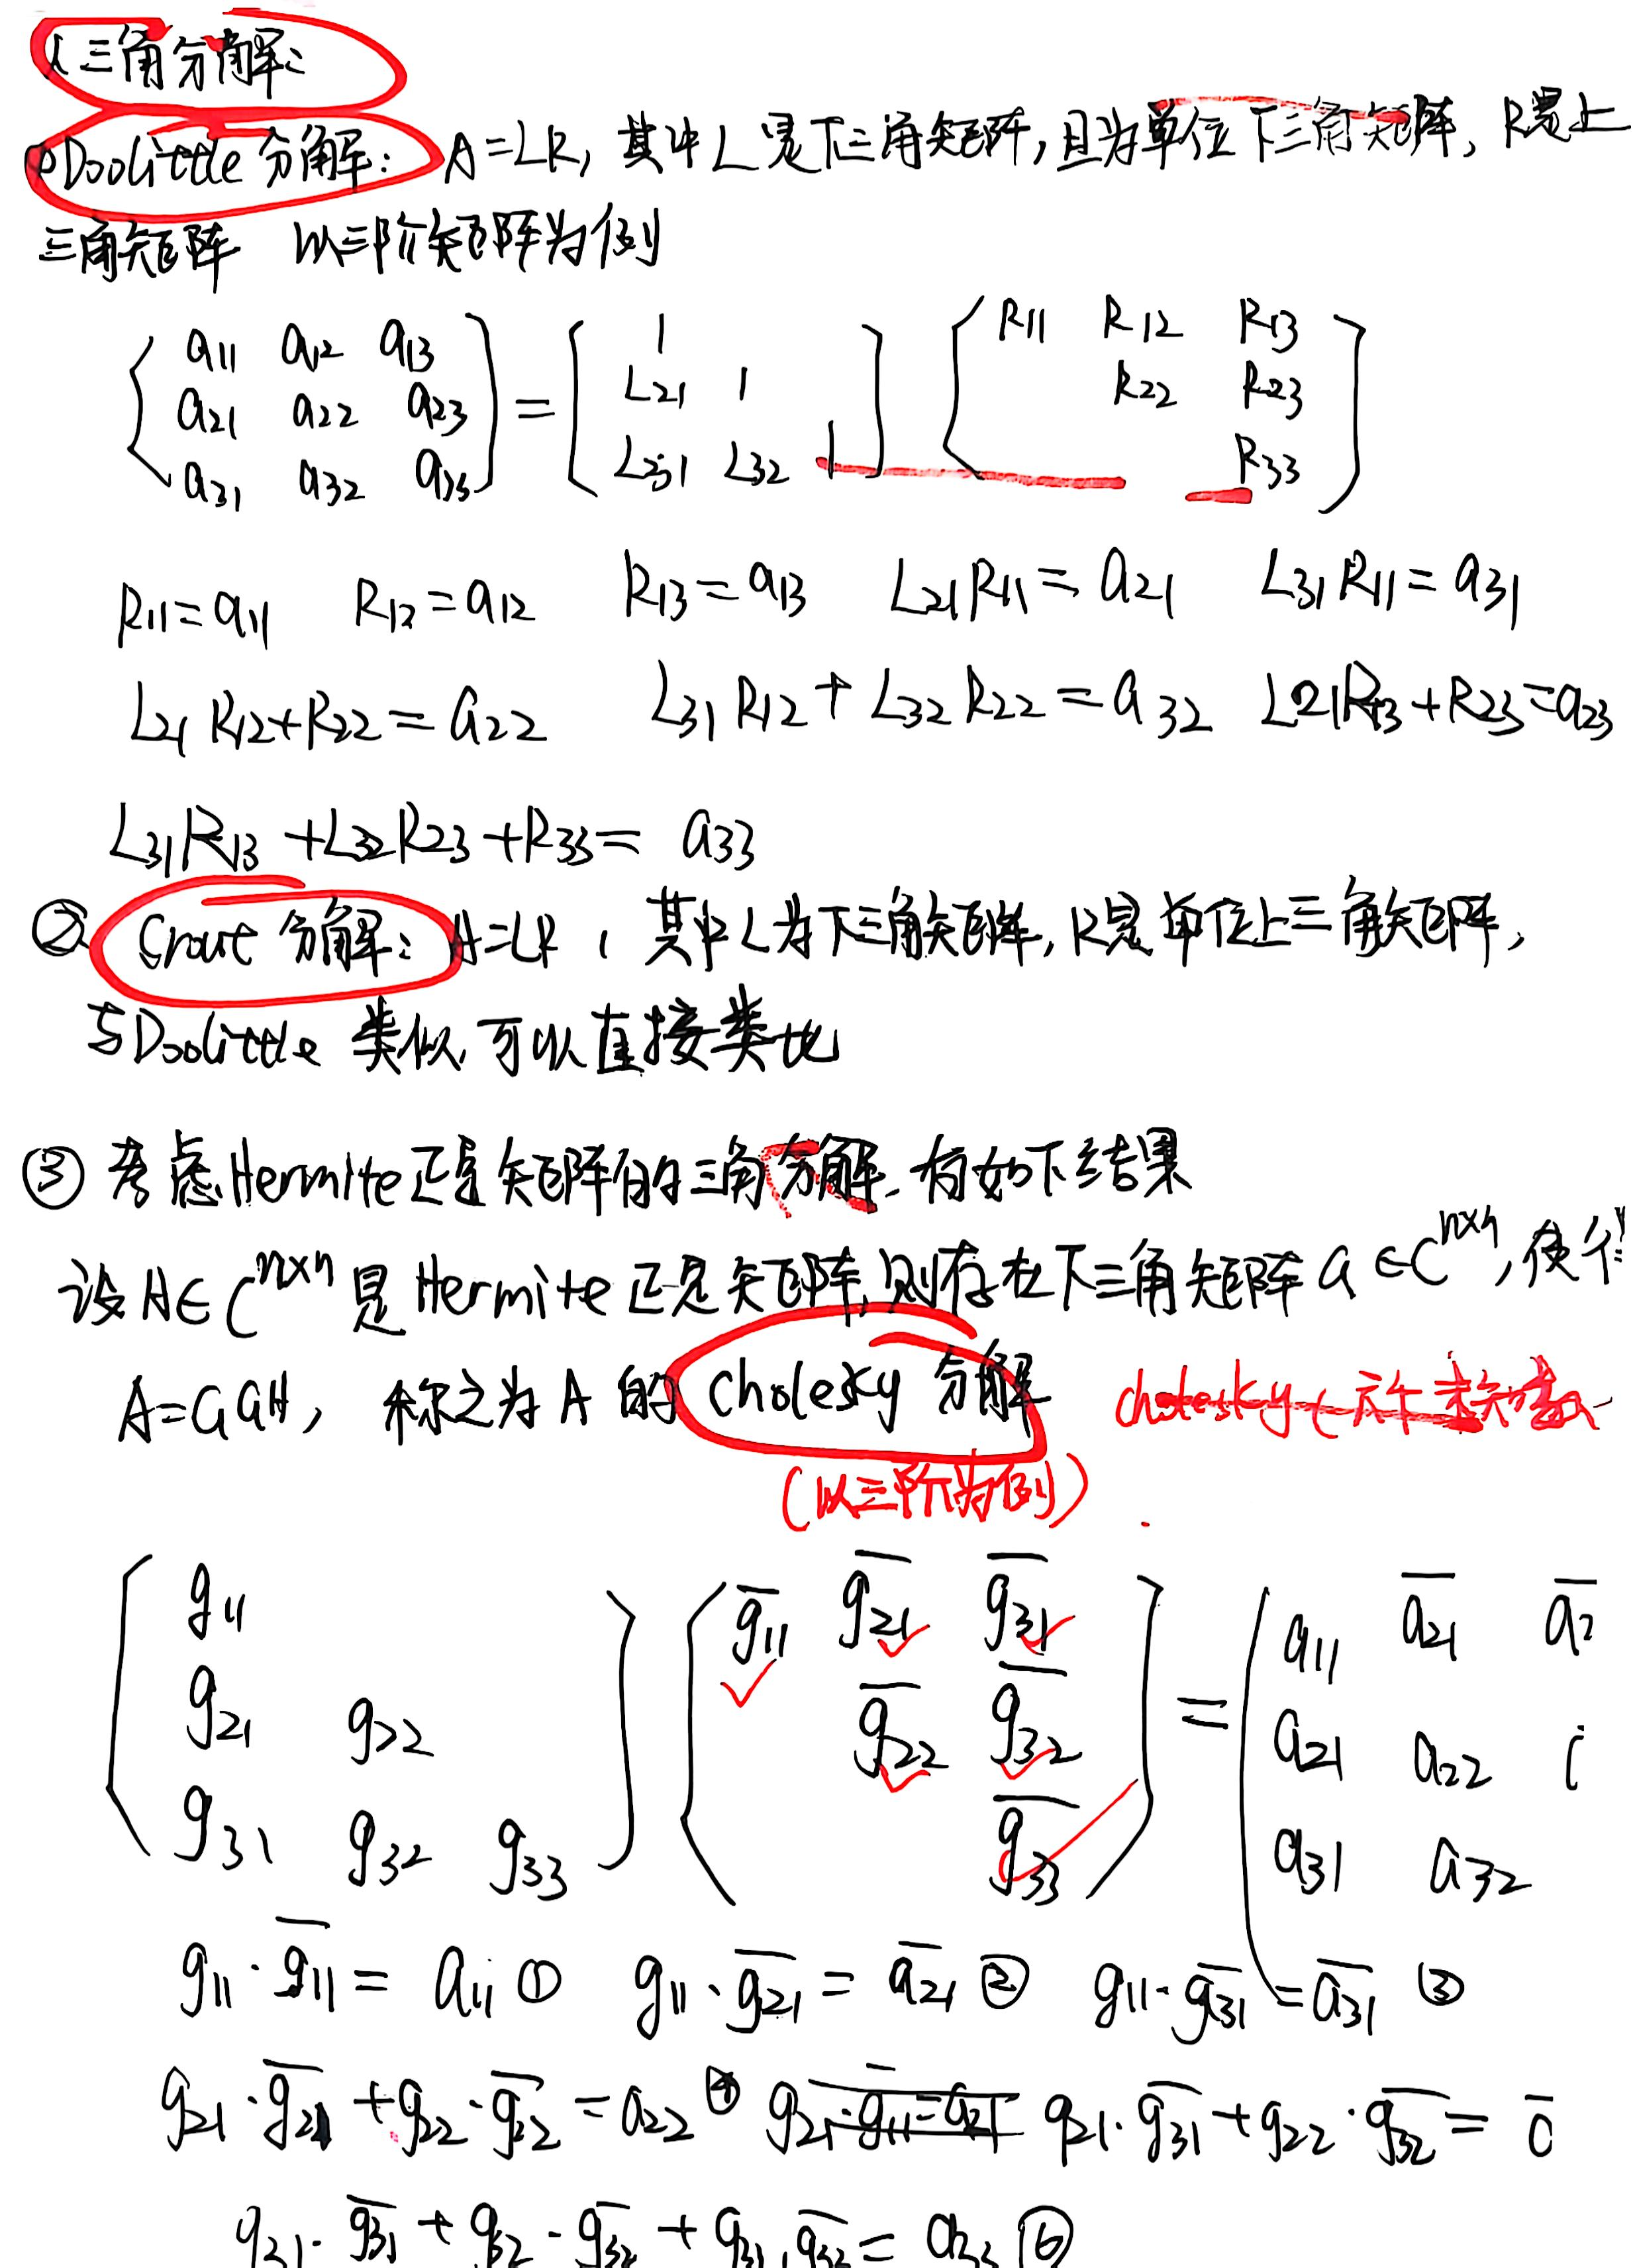 1. 三角分解:
①Doolittle 分解: A=LR, 其中L是下三角矩阵,且为单位下三角矩阵, R是上
三角矩阵 以三阶矩阵为例
a11 a12 a13 = 1 R11 R12 R13
a21 a22 a23 L21 1 R22 R23
a31 a32 a33 L31 L32 1 R33
R11=a11 R12=a12 R13=a13 L21R11=a21 L31R11=a31
L21R12+R22=a22 L31R12+L32R22=a32 L21R13+R23=a23
L31R13+L32R23+R33=a33
② Crout 分解: A=LR, 其中L为下三角矩阵, R是单位上三角矩阵,
与Doolittle 类似,可以直接类比
③ 考虑Hermite正定矩阵的三角分解,有如下结果
设A∈C^{n×n}是Hermite正定矩阵,则存在下三角矩阵G∈C^{n×n},使得
A=GG^H, 称之为A的 Cholesky 分解 cholesky(六个未知数
(以三阶为例)
g11 g̅11 g̅21 g̅31 = a11 a̅21
g21 g22 g̅22 g̅32 a21 a22
g31 g32 g33 g̅33 a31 a32
g11·g̅11=a11 ① g11·g̅21=a̅21 ② g11·g̅31=a̅31 ③
g21·g̅21+g22·g̅22=a22 ④ g21·g̅11=a21 g21·g̅31+g22·g̅32=
g31·g̅31+g32·g̅32+g33·g̅33=a33 ⑥